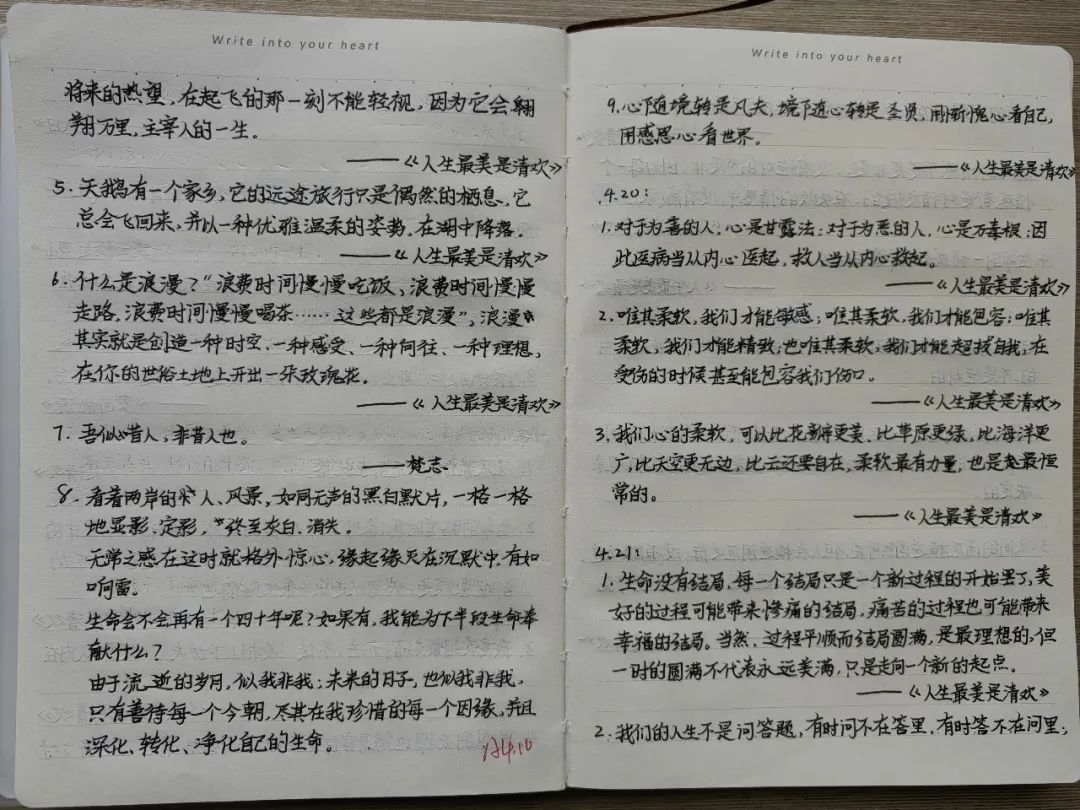 Write into your heart
将来的热望,在起飞的那一刻不能轻视,因为它会翱
翔万里,主宰人的一生。
——《人生最美是清欢》
5.天鹅有一个家乡,它的远途旅行只是偶然的栖息,它
总会飞回来,并以一种优雅温柔的姿势,在湖中降落。
——《人生最美是清欢》
6.什么是浪漫?“浪费时间慢慢吃饭、浪费时间慢慢
走路,浪费时间慢慢喝茶……这些都是浪漫”,浪漫
其实就是创造一种时空、一种感受、一种向往、一种理想,
在你的世俗土地上开出一朵玫瑰花。
——《人生最美是清欢》
7.吾似昔人,非昔人也。
——梵志
8.看着两岸的人、风景,如同无声的黑白默片,一格一格
地显影、定影,终至灰白、消失。
无常之感在这时就格外惊心,缘起缘灭在沉默中,有如
响雷。
生命会不会再有一个四十年呢?如果有,我能为下半段生命奉
献什么?
由于流逝的岁月,似我非我;未来的日子,也似我非我,
只有善待每一个今朝,尽其在我珍惜的每一个因缘,并且
深化、转化、净化自己的生命。
Write into your heart
9.心随境转是凡夫,境随心转是圣贤,用惭愧心看自己,
用感恩心看世界。
——《人生最美是清欢》
4.20:
1.对于为善的人,心是甘露法;对于为恶的人,心是万毒根;因
此医病当从内心医起,救人当从内心救起。
——《人生最美是清欢》
2.唯其柔软,我们才能敏感;唯其柔软,我们才能包容;唯其
柔软,我们才能精致;也唯其柔软,我们才能超拔自我,在
受伤的时候甚至能包容我们伤口。
——《人生最美是清欢》
3.我们心的柔软,可以比花瓣更美,比草原更绿,比海洋更
广,比天空更无边,比云还要自在,柔软最有力量,也是最恒
常的。
——《人生最美是清欢》
4.21:
1.生命没有结局,每一个结局只是一个新过程的开始罢了,美
好的过程可能带来惨痛的结局,痛苦的过程也可能带来
幸福的结局。当然,过程平顺而结局圆满,是最理想的,但
一时的圆满不代表永远美满,只是走向一个新的起点。
——《人生最美是清欢》
2.我们的人生不是问答题,有时问不在答里,有时答不在问里;